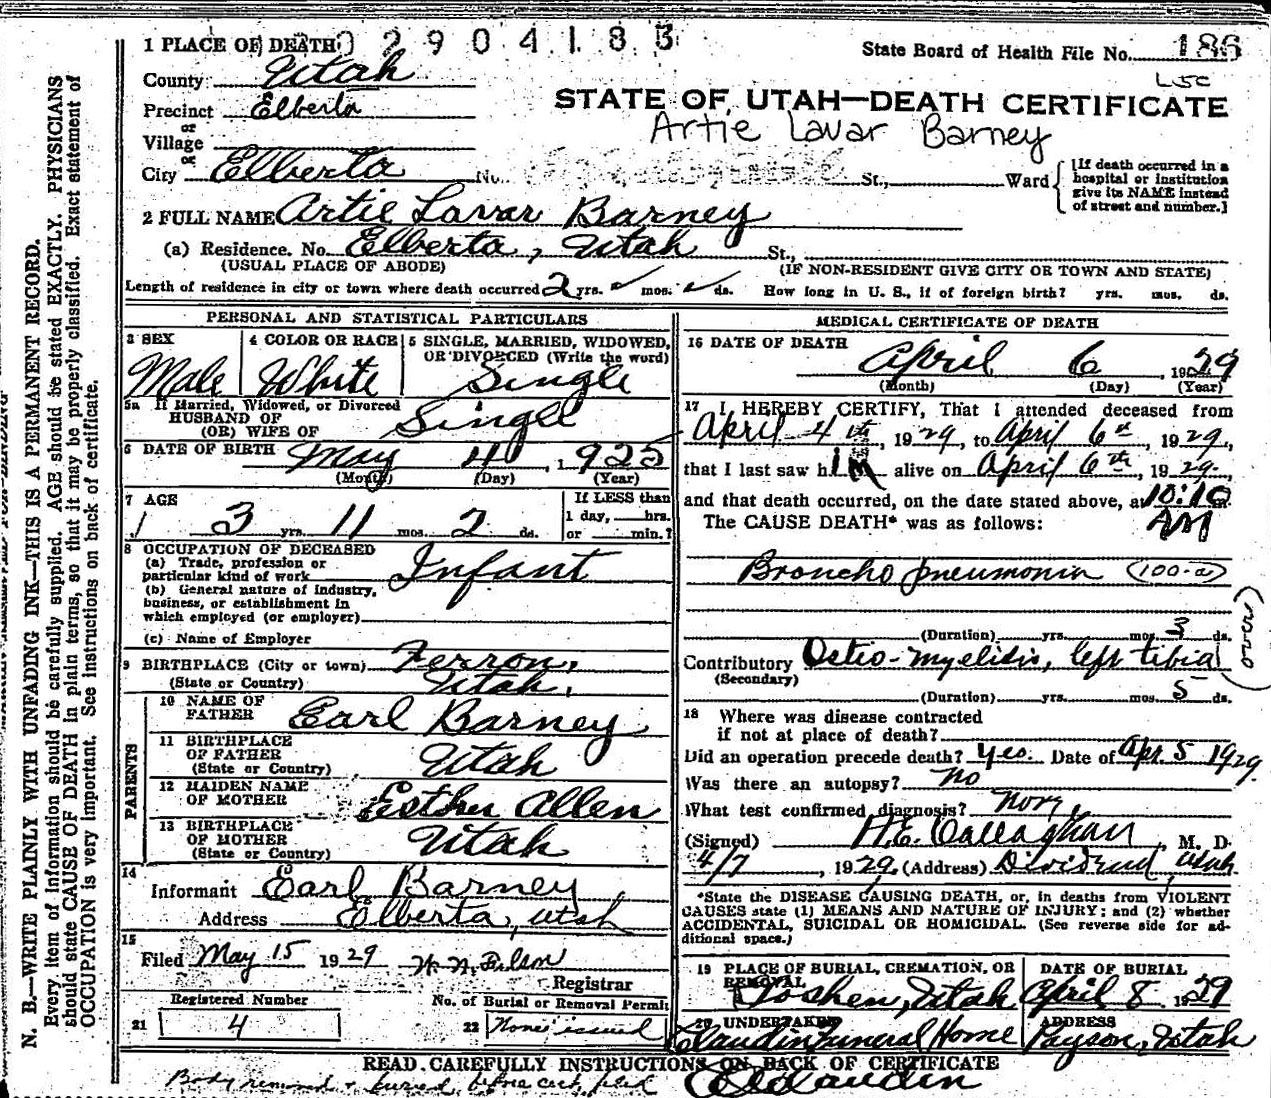 1 PLACE OF DEATH 02904183
State Board of Health File No. 186
County Utah
LSC
STATE OF UTAH—DEATH CERTIFICATE
Precinct Elberta
Artie Lavar Barney
or
Village
or
City Elberta No. St., Ward
[If death occurred in a
hospital or institution
give its NAME instead
of street and number.]
2 FULL NAME Artie Lavar Barney
(a) Residence. No. Elberta, Utah St.,
(USUAL PLACE OF ABODE) (IF NON-RESIDENT GIVE CITY OR TOWN AND STATE)
Length of residence in city or town where death occurred 2 yrs. mos. ds. How long in U. S., if of foreign birth? yrs. mos. ds.
PERSONAL AND STATISTICAL PARTICULARS
3 SEX Male
4 COLOR OR RACE White
5 SINGLE, MARRIED, WIDOWED,
OR DIVORCED (Write the word)
Single
5a If Married, Widowed, or Divorced
HUSBAND OF
(OR) WIFE OF Single
6 DATE OF BIRTH May 4, 1925
(Month) (Day) (Year)
7 AGE
3 yrs. 11 mos. 2 ds.
If LESS than
1 day, hrs.
or min.?
8 OCCUPATION OF DECEASED
(a) Trade, profession or
particular kind of work Infant
(b) General nature of industry,
business, or establishment in
which employed (or employer)
(c) Name of Employer
9 BIRTHPLACE (City or town) Ferron,
(State or Country) Utah.
PARENTS
10 NAME OF
FATHER Earl Barney
11 BIRTHPLACE
OF FATHER
(State or Country) Utah
12 MAIDEN NAME
OF MOTHER Esther Allen
13 BIRTHPLACE
OF MOTHER
(State or Country) Utah
14
Informant Earl Barney
Address Elberta, Utah
15
Filed May 15 1929
Registrar
Registered Number
21 4
No. of Burial or Removal Permit
22 None issued
MEDICAL CERTIFICATE OF DEATH
16 DATE OF DEATH
April 6, 1929
(Month) (Day) (Year)
17 I HEREBY CERTIFY, That I attended deceased from
April 4th, 1929, to April 6th, 1929,
that I last saw him alive on April 6th, 1929.
and that death occurred, on the date stated above, at 10:10
AM
The CAUSE DEATH* was as follows:
Broncho pneumonia (100-a)
(Duration) yrs. mos. 3 ds.
Contributory Osteo-myelidis, left tibia
(Secondary)
(over)
(Duration) yrs. mos. 5 ds.
18 Where was disease contracted
if not at place of death?
Did an operation precede death? yes. Date of Apr. 5 1929
Was there an autopsy? No
What test confirmed diagnosis?
(Signed) H.E. Callaghan, M. D.
4/7, 1929. (Address) Dividend, Utah
*State the DISEASE CAUSING DEATH, or, in deaths from VIOLENT
CAUSES state (1) MEANS AND NATURE OF INJURY; and (2) whether
ACCIDENTAL, SUICIDAL OR HOMICIDAL. (See reverse side for ad-
ditional space.)
19 PLACE OF BURIAL, CREMATION, OR
REMOVAL
Goshen, Utah
DATE OF BURIAL
April 8 1929
20 UNDERTAKER
Claudin Funeral Home
ADDRESS
Payson, Utah
READ CAREFULLY INSTRUCTIONS ON BACK OF CERTIFICATE
Body removed & buried before cert. filed
N. B.—WRITE PLAINLY WITH UNFADING INK—THIS IS A PERMANENT RECORD.
Every item of information should be carefully supplied. AGE should be stated EXACTLY. PHYSICIANS
should state CAUSE OF DEATH in plain terms, so that it may be properly classified. Exact statement of
OCCUPATION is very important. See instructions on back of certificate.